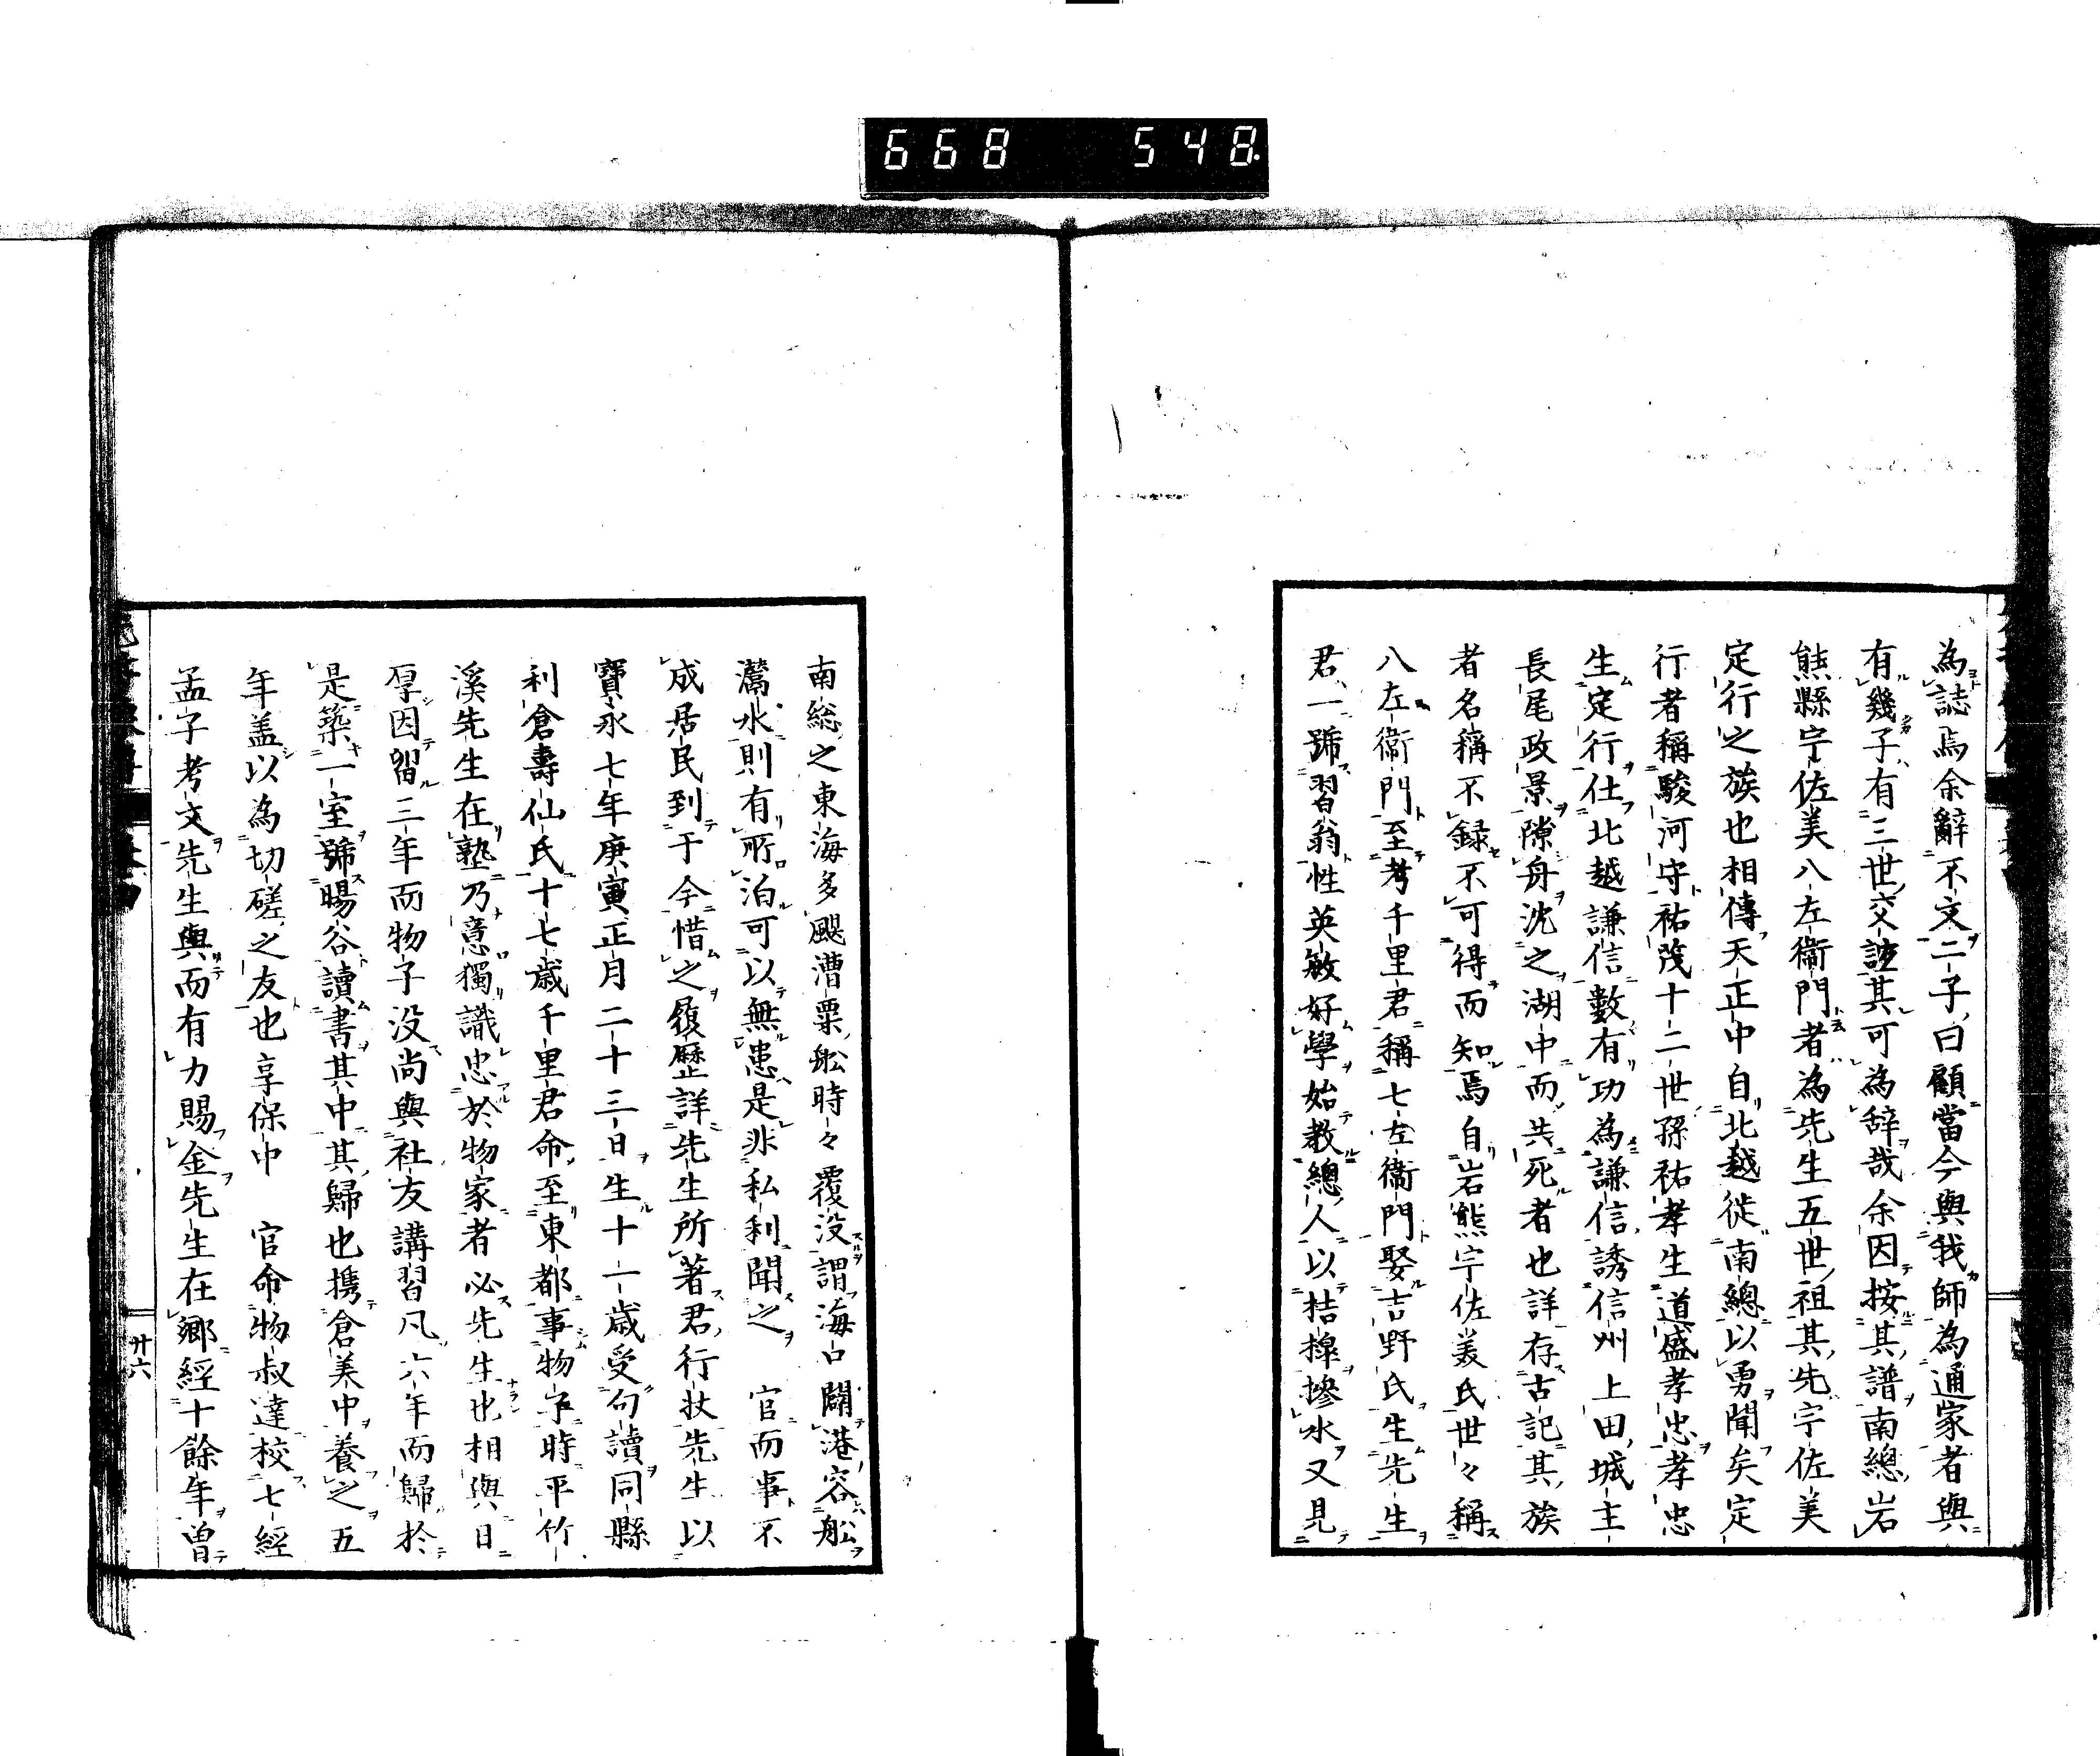 668 548
為誌焉余辭不文二子曰顧當今與我師為通家者與
有幾子有三世交誼其可為辞哉余因按其譜南總岩
熊縣宇佐美八左衞門者為先生五世祖其先宇佐美
定行之族也相傳天正中自北越徙南總以勇聞矣定
行者稱駿河守祐茂十二世孫祐孝生道盛孝忠孝忠
生定行仕北越謙信數有功為謙信誘信州上田城主
長尾政景隙舟沈之湖中而共死者也詳存古記其族
者名稱不録不可得而知焉自岩熊宇佐美氏世々稱
八左衞門至考千里君稱七左衞門娶吉野氏生先生
君一號習翁性英敏好學始教總人以桔槹摻水又見
南総之東海多颶漕粟舩時々覆没謂海口闢港容舩
灊水則有所泊可以無患是非私利聞之 官而事不
成居民到于今惜之履歷詳先生所著君行狀先生以
寶永七年庚寅正月二十三日生十一歳受句讀同縣
利倉壽仙氏十七歳千里君命至東都事物子時平竹
溪先生在塾乃意獨識忠於物家者必先生也相與日
厚因留三年而物子没尚與社友講習凡六年而歸於
是築一室號暘谷讀書其中其歸也携倉美中養之五
年盖以為切磋之友也享保中 官命物叔達校七經
孟子考文先生與而有力賜金先生在鄉經十餘年曽
廿六